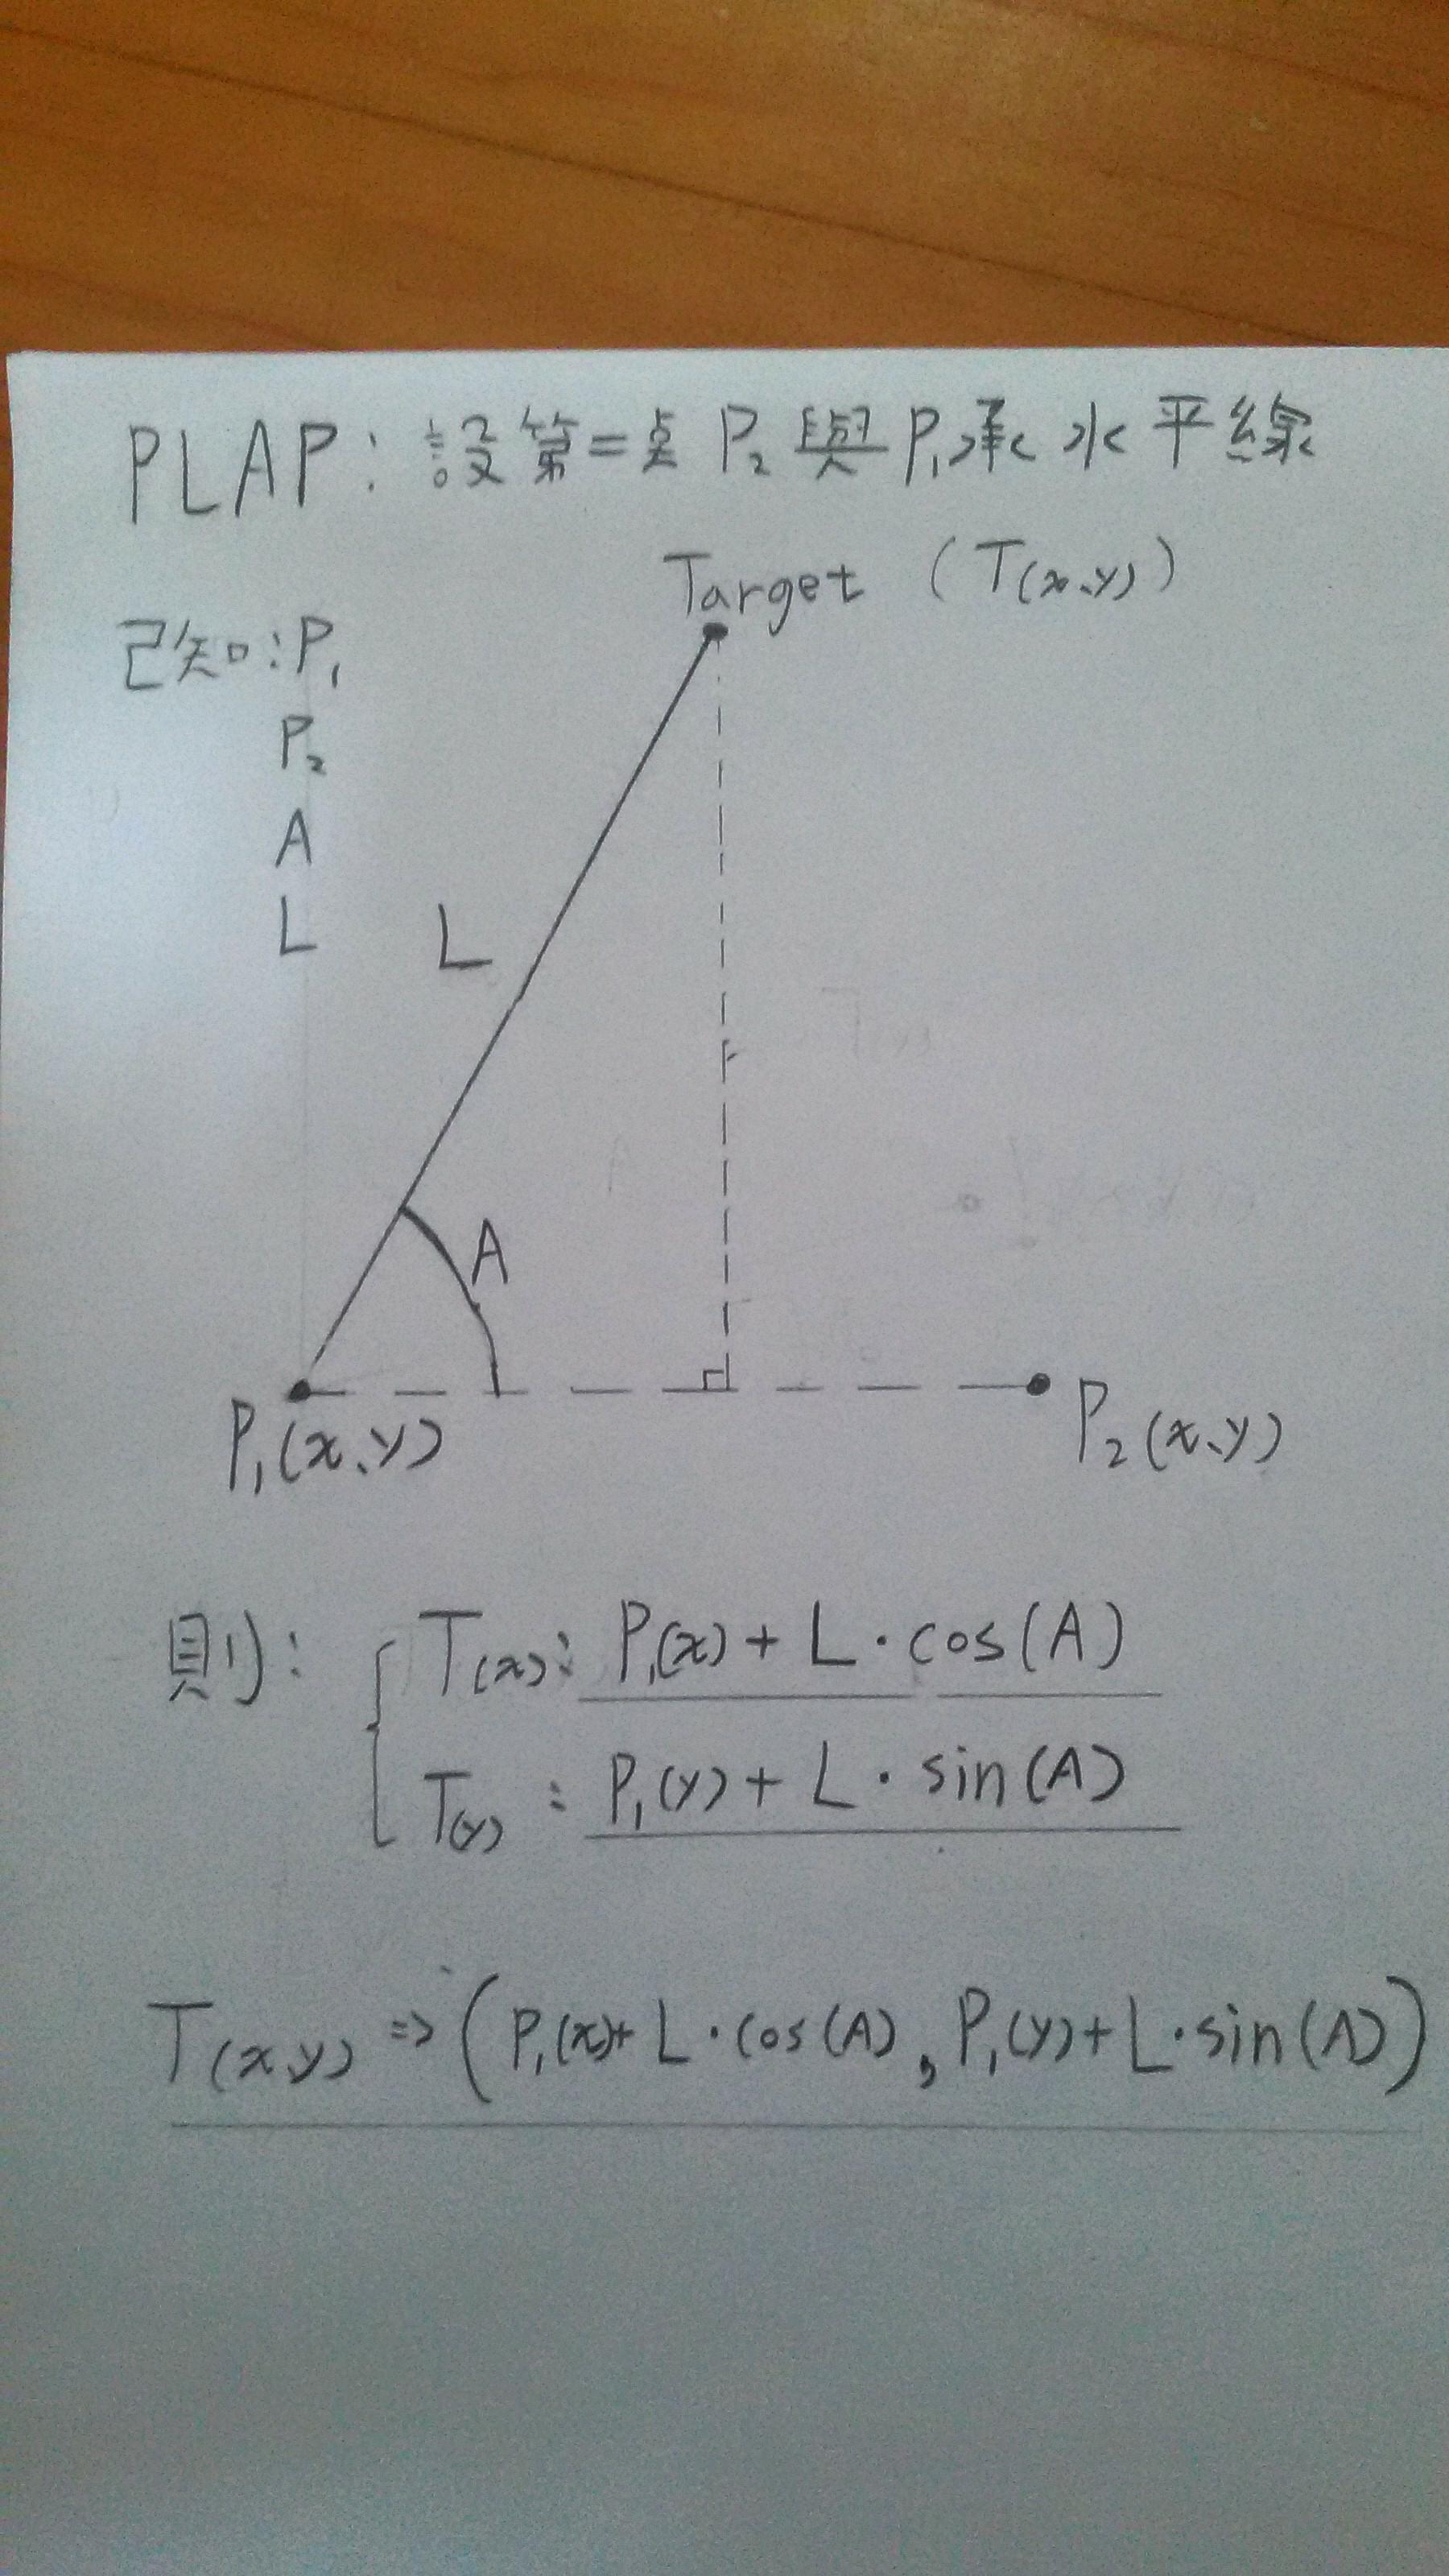 PLAP: 設第二点 P₂ 與 P₁ 承水平線
Target (T(x、y))
已知: P₁
P₂
A
L
L
A
P₁(x、y)
P₂(x、y)
則: T(x): P₁(x) + L · cos(A)
T(y): P₁(y) + L · sin(A)
T(x、y) => (P₁(x)+ L · cos(A), P₁(y)+ L · sin(A))